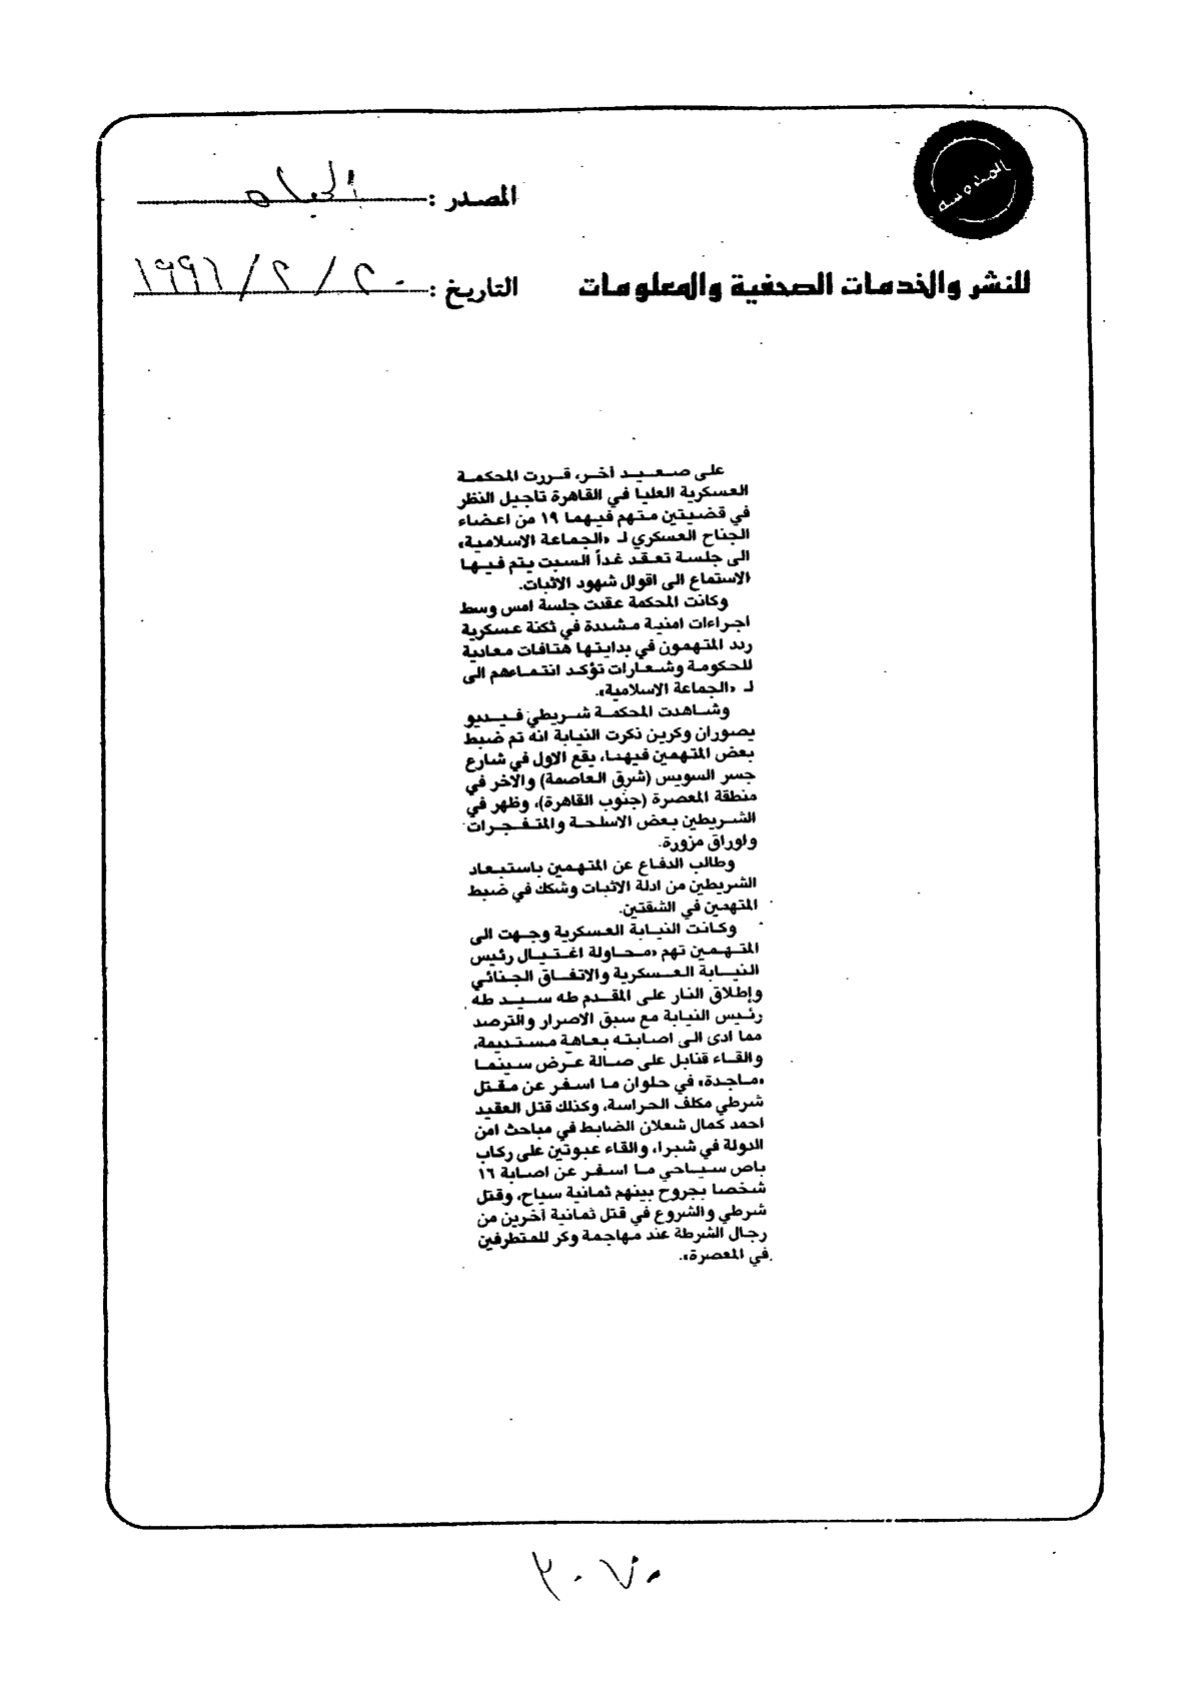 المدوسه
المصدر : الحياه
للنشر والخدمات الصحفية والمعلومات
التاريخ : ٢٠ / ٢ / ١٩٩٦
على صعيد آخر، قررت المحكمة
العسكرية العليا في القاهرة تاجيل النظر
في قضيتين متهم فيهما ١٩ من اعضاء
الجناح العسكري لـ «الجماعة الاسلامية»
الى جلسة تعقد غداً السبت يتم فيها
الاستماع الى اقوال شهود الاثبات.
وكانت المحكمة عقدت جلسة امس وسط
اجراءات امنية مشددة في ثكنة عسكرية
ردد المتهمون في بدايتها هتافات معادية
للحكومة وشعارات تؤكد انتماءهم الى
لـ «الجماعة الاسلامية».
وشاهدت المحكمة شريطي فيديو
يصوران وكرين ذكرت النيابة انه تم ضبط
بعض المتهمين فيهما، يقع الاول في شارع
جسر السويس (شرق العاصمة) والآخر في
منطقة المعصرة (جنوب القاهرة)، وظهر في
الشريطين بعض الاسلحة والمتفجرات
واوراق مزورة.
وطالب الدفاع عن المتهمين باستبعاد
الشريطين من ادلة الاثبات وشكك في ضبط
المتهمين في الشقتين.
وكانت النيابة العسكرية وجهت الى
المتهمين تهم «محاولة اغتيال رئيس
النيابة العسكرية والاتفاق الجنائي
وإطلاق النار على المقدم طه سيد طه
رئيس النيابة مع سبق الاصرار والترصد
مما ادى الى اصابته بعاهة مستديمة،
والقاء قنابل على صالة عرض سينما
«ماجدة» في حلوان ما اسفر عن مقتل
شرطي مكلف الحراسة، وكذلك قتل العقيد
احمد كمال شعلان الضابط في مباحث امن
الدولة في شبرا، والقاء عبوتين على ركاب
باص سياحي ما اسفر عن اصابة ١٦
شخصا بجروح بينهم ثمانية سياح، وقتل
شرطي والشروع في قتل ثمانية آخرين من
رجال الشرطة عند مهاجمة وكر للمتطرفين
في المعصرة».
٣٠٧٠